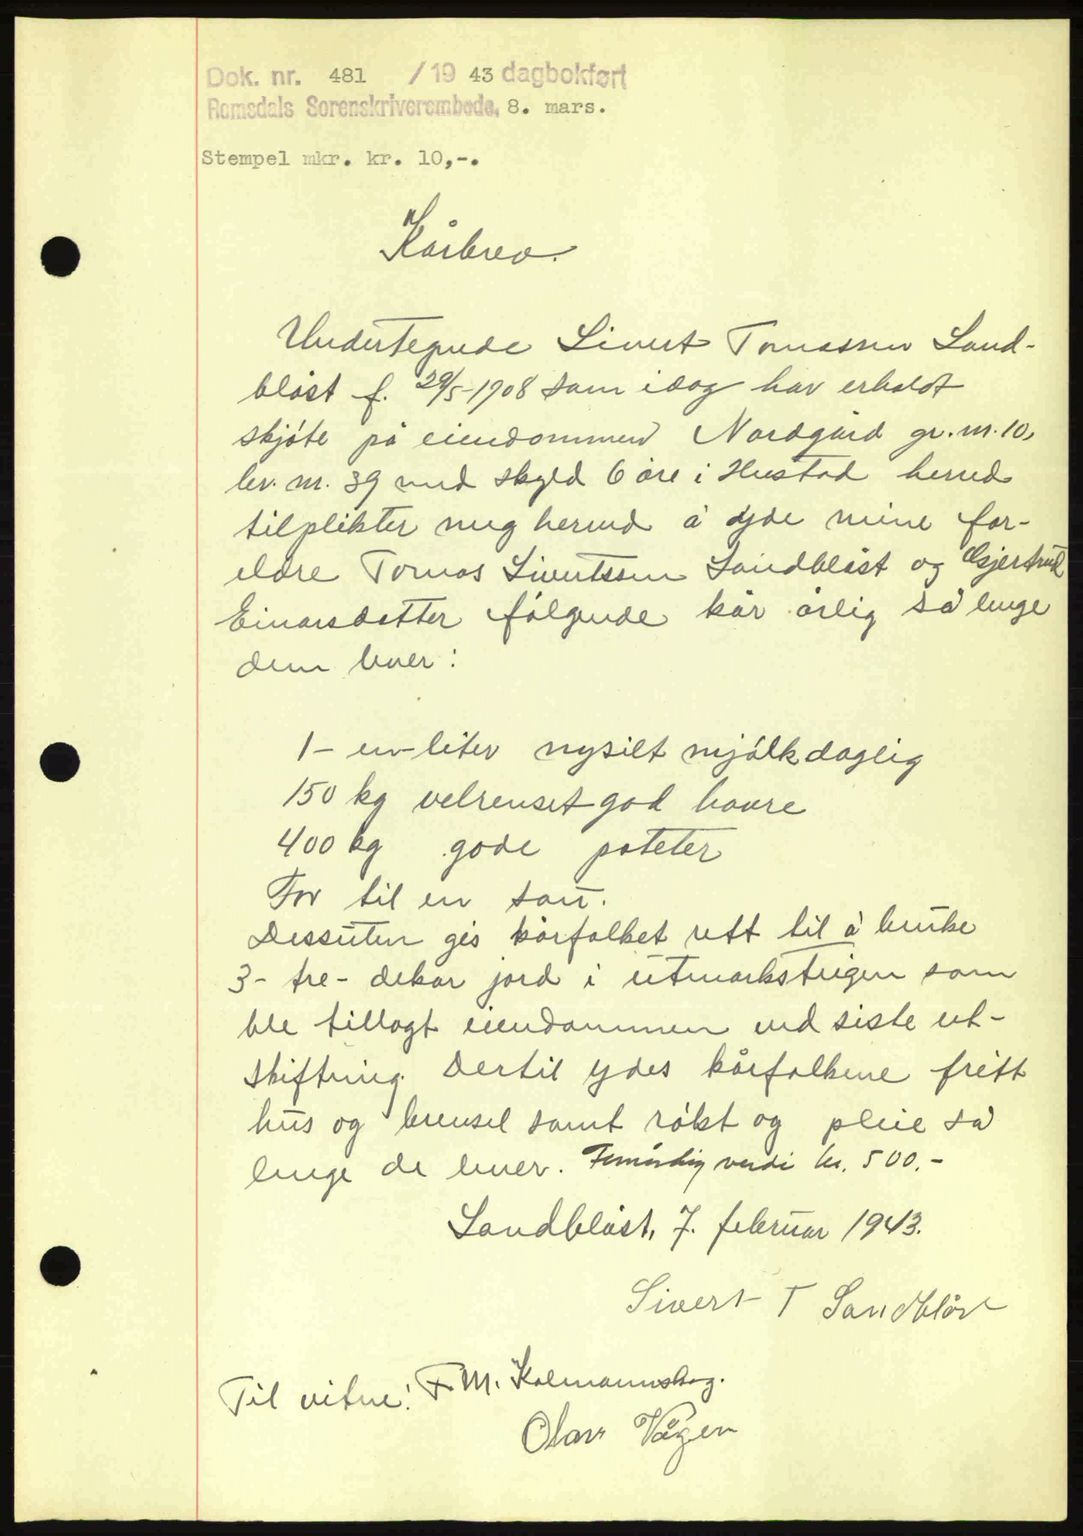 Dok. nr. 481 / 19 43 dagbokført
Romsdals Sorenskriverembede, 8. mars.
Stempel mkr. kr. 10,-.
Kårbrev.
Undertegnede Sivert Tomassen Sand-
bløst f. 29/5-1908 som idag har erholdt
skjøte på eiendommen Nordgård gr. nr. 10,
br. nr. 39 med skyld 6 øre i Hustad herred
tilplikter meg herved å yde mine for-
eldre Tomas Sivertssen Sandbløst og Gjertrud
Einarsdatter følgende kår årlig så lenge
dem lever:
1- en- liter nysilt mjølk daglig
150 kg velrenset god havre
400 kg gode poteter
For til en sau.
Dessuten gis kårfolket rett til å bruke
3- tre- dekar jord i utmarksteigen som
ble tillagt eiendommen ved siste ut-
skiftning. Dertil ydes kårfolkene fritt
hus og brensel samt røkt og pleie så
lenge de lever. Femårlig verdi kr. 500.-
Sandbløst, 7. februar 1943.
Sivert T Sandbløst
Til vitne: F. M. Kolmannskog.
Olav Vågen